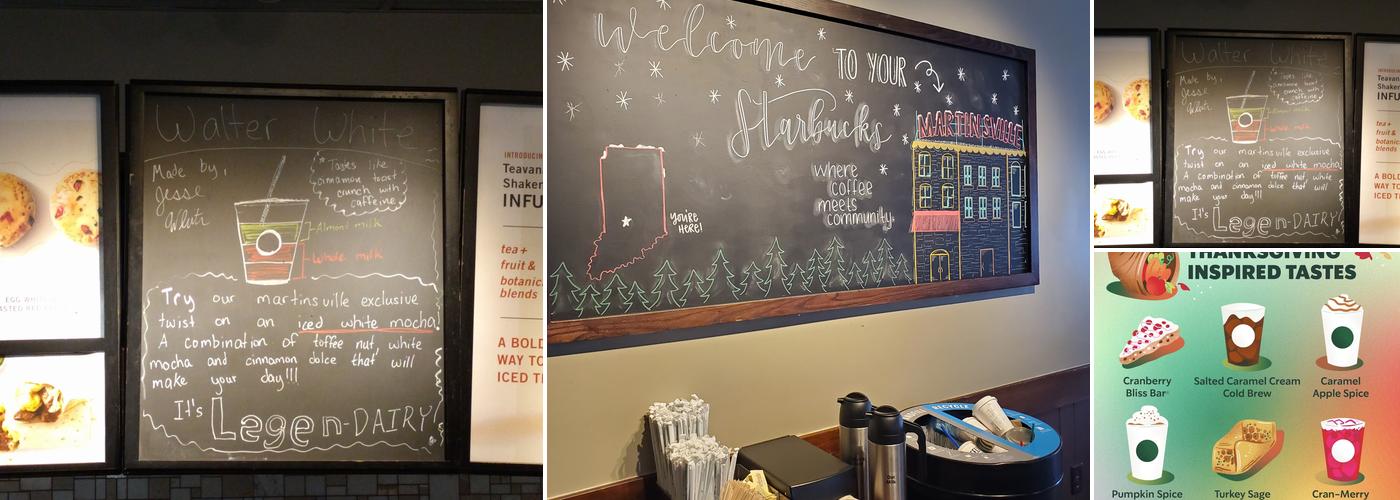 Walter White
Made by,
Jesse
Tastes like
cinnamon toast
crunch with
caffeine
Almond milk
Whole milk
Try our martinsville exclusive
twist on an iced white mocha.
A combination of toffee nut, white
mocha and cinnamon dolce that will
make your day!!!
It's Legen-DAIRY!
INTRODUCING
Teavana
Shaken
INFU
tea+
fruit &
botanic
blends
A BOLD
WAY TO
ICED T
EGG WHI
Welcome TO YOUR
Starbucks
MARTINSVILLE
where
coffee
meets
community.
YOU'RE
HERE!
RECYCLE
Walter White
Made by,
Jesse
Tastes like
cinnamon toast
crunch with
caffeine
Almond milk
Whole milk
Try our martinsville exclusive
twist on an iced white mocha.
A combination of toffee nut, white
mocha and cinnamon dolce that will
make your day!!!
It's Legen-DAIRY!
Teavan
Shake
INFU
tea+
fruit &
blends
A BOLD
WAY TO
ICED T
THANKSGIVING
INSPIRED TASTES
Cranberry
Bliss Bar
Salted Caramel Cream
Cold Brew
Caramel
Apple Spice
Pumpkin Spice
Turkey Sage
Cran-Merry